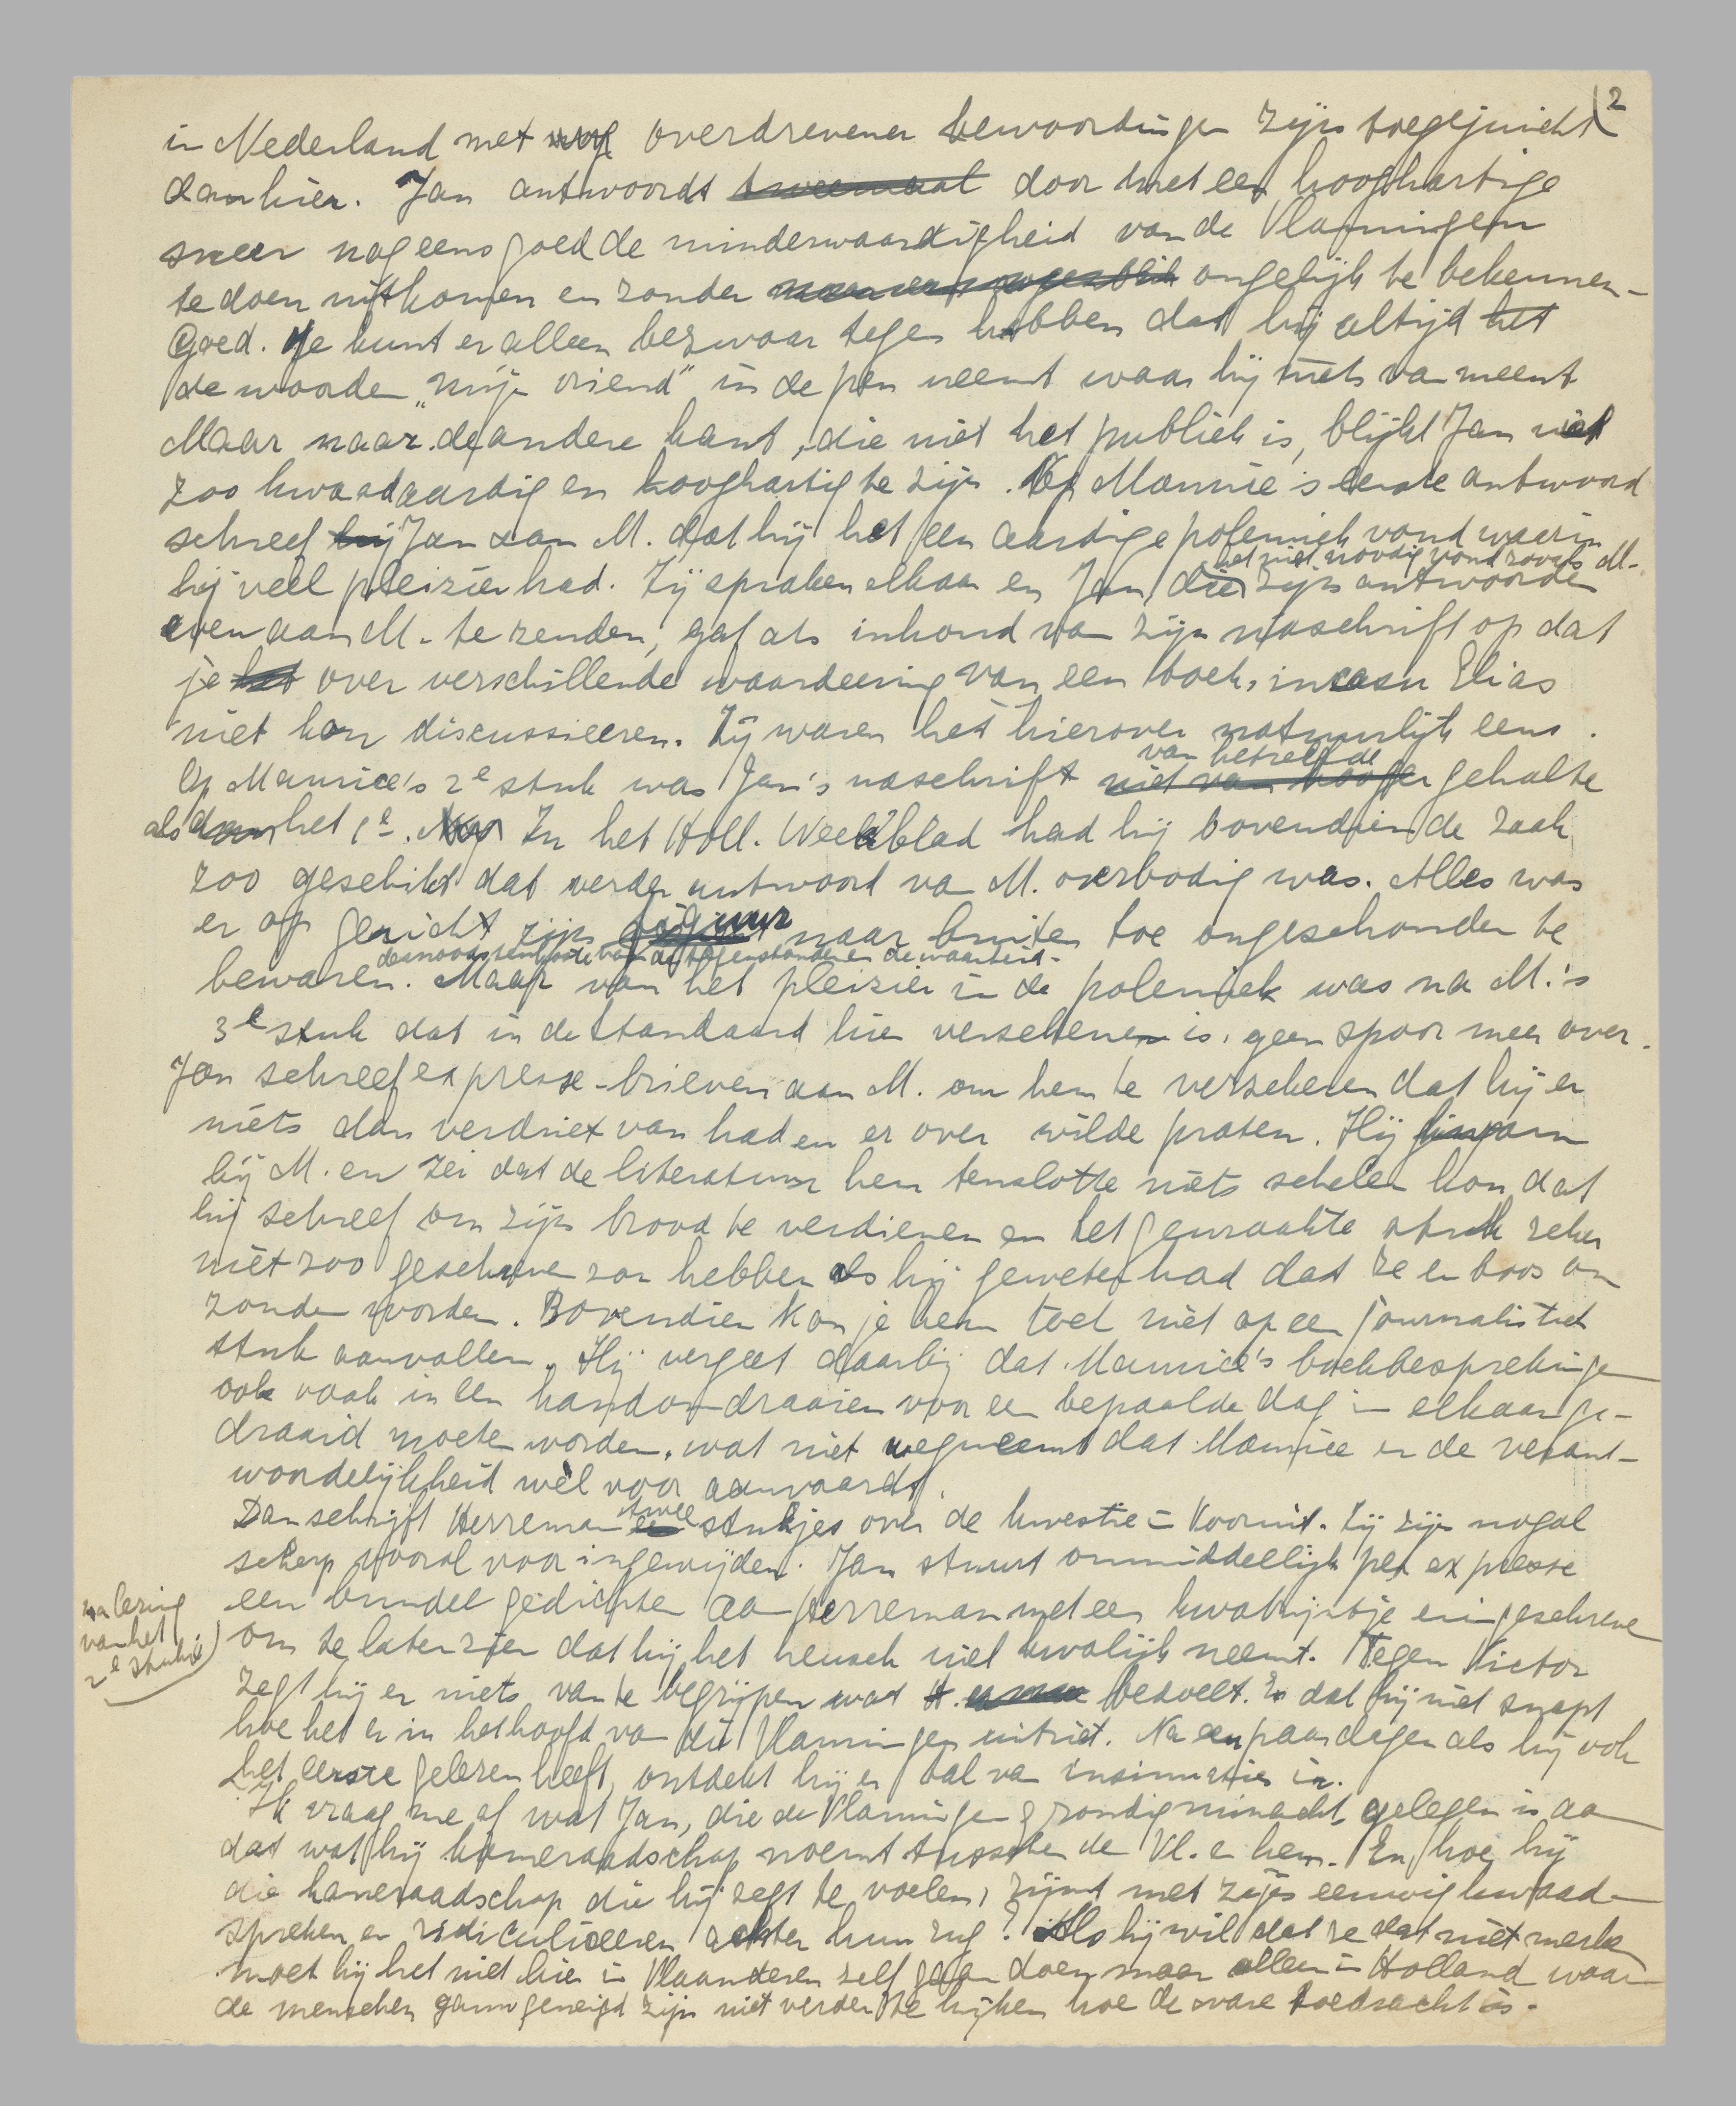 2
in Nederland met nog overdrevener bewoordingen zijn toegejuicht
dan hier. Jan antwoordt tweemaal door met een hooghartige
sneer nog eens goed de minderwaardigheid van de Vlamingen
te doen uitkomen en zonder ongelijk te bekennen -
Goed. Je kunt er alleen bezwaar tegen hebben dat hij altijd het
de woorden „mijn vriend" in de pen neemt waar hij niets van meent
Maar naar de andere kant, die niet het publiek is, blijkt Jan niet
zoo kwaadaardig en hooghartig te zijn. Op Maurice's eerste antwoord
schreef hij Jan aan M. dat hij het een aardige polemiek vond waarin
het niet noodig vond zooals M.
hij veel pleizier had. Zij spraken elkaar en Jan, die zijn antwoorden
even aan M. te zenden, gaf als inhoud van zijn naschrift op dat
je het over verschillende waardeering van een boek, in casu Elias
niet kon discussieeren. Zij waren het hierover natuurlijk eens.
van hetzelfde
Op Maurice's 2e stuk was Jan's naschrift niet van hooger gehalte
als dan het 1e. In het Holl. Weekblad had hij bovendien de zaak
zoo geschikt dat verder antwoord van M. overbodig was. Alles was
er op gericht zijn figuur naar buiten toe ongeschonden te
desnoods ten koste van de tegenstander en de waarheid.
bewaren. Maar van het pleizier in de polemiek was na M.'s
3e stuk dat in de Standaard hier verschenen is, geen spoor meer over.
Jan schreef expresse-brieven aan M. om hem te verzekeren dat hij er
niets dan verdriet van had en er over wilde praten. Hij kwam
bij M. en zei dat de literatuur hem tenslotte niets schelen kon dat
hij schreef om zijn brood te verdienen en het gewraakte stuk zeker
niet zoo geschreven zou hebben als hij geweten had dat ze er boos om
zouden worden. Bovendien kon je hem toch niet op een journalistiek
stuk aanvallen. Hij vergeet daarbij dat Maurice's boekbesprekingen
ook vaak in een handomdraaien voor een bepaalde dag in elkaar ge-
draaid moeten worden, wat niet wegneemt dat Maurice er de verant-
woordelijkheid wèl voor aanvaardt.
twee
Dan schrijft Herreman een stukjes over de kwestie in Vooruit. Zij zijn nogal
scherp vooral voor ingewijden. Jan stuurt onmiddellijk per expresse
na lezing
van het
2e stukje)
een bundel gedichten aan Herreman met een kwatrijntje erin geschreven
om te laten zien dat hij het heusch niet kwalijk neemt. Tegen Victor
zegt hij er niets van te begrijpen wat H. bedoelt. En dat hij niet snapt
hoe het er in het hoofd van die Vlamingen uitziet. Na een paar dagen als hij ook
het eerste gelezen heeft, ontdekt hij er tal van insinuaties in.
Ik vraag me af wat Jan, die de Vlamingen grondig minacht gelegen is aan
dat wat hij kameraadschap noemt tusschen de Vl. en hem. En hoe hij
die kameraadschap die hij zegt te voelen, rijmt met zijn eeuwig kwaad-
spreken en ridiculiseeren achter hun rug? Als hij wil dat ze dat niet merken
moet hij het niet hier in Vlaanderen zelf gaan doen maar alleen in Holland waar
de menschen gauw geneigd zijn niet verder te kijken hoe de ware toedracht is.